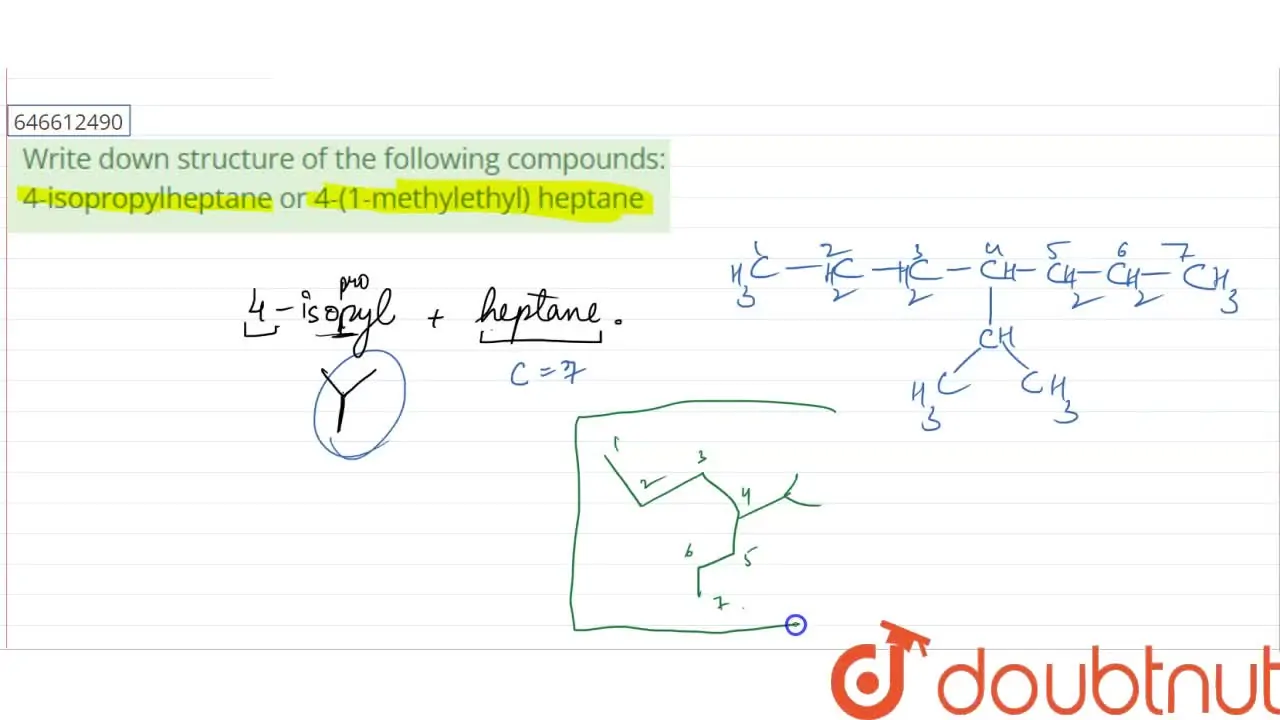 646612490
Write down structure of the following compounds:
4-isopropylheptane or 4-(1-methylethyl) heptane
pro
4-isopyl + heptane.
C=7
1 2 3 4 5 6 7
H3C — H2C — H2C — CH — CH2 — CH2 — CH3
CH
H3C CH3
1
2
3
4
5
6
7
doubtnut